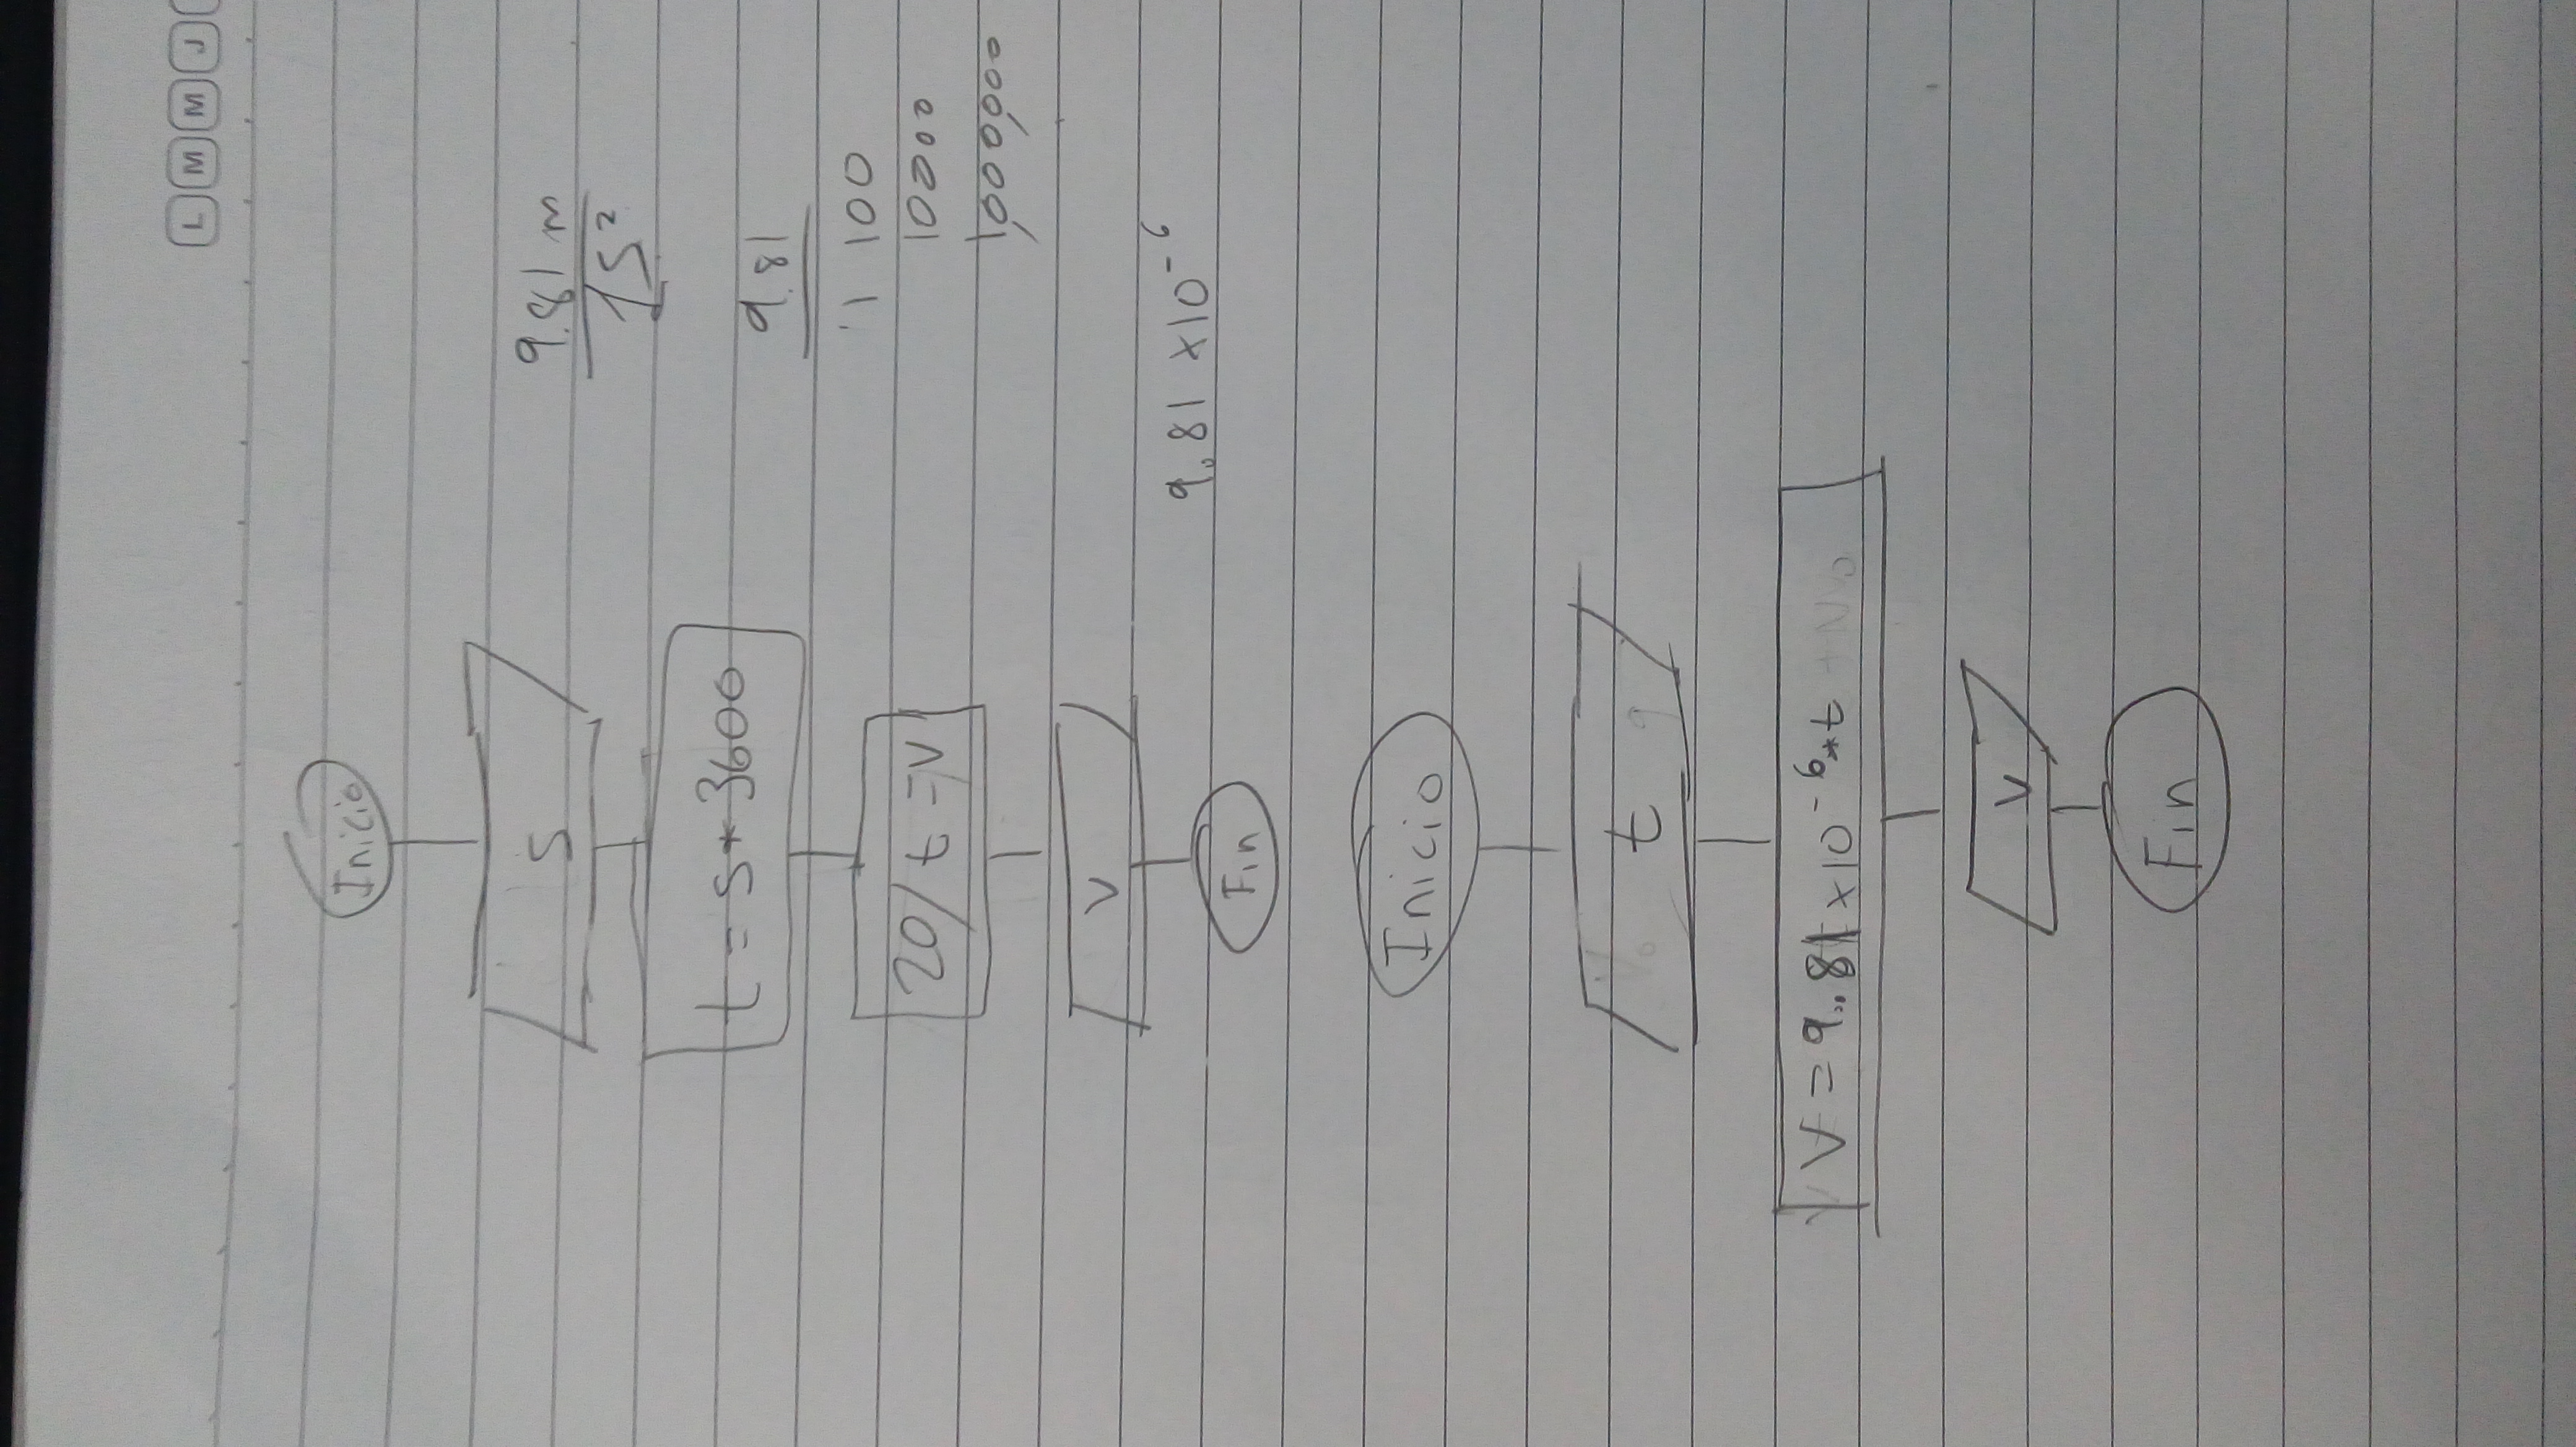 L M M J
Inicio
S
t = s * 3600
20/t = V
V
Fin
9.81 m
1 s²
9.81
1 100
10000
1,000,000
9.81 x10⁻⁶
Inicio
t
V = 9.81x10⁻⁶*t
V
Fin